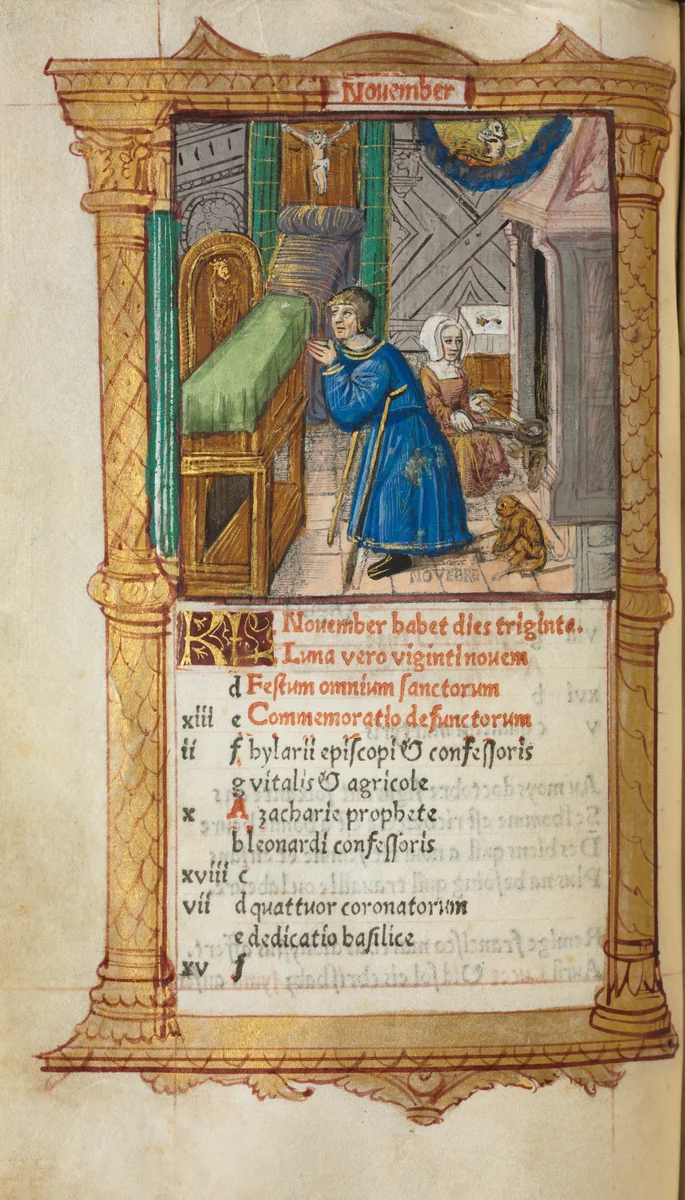 Nouember
NOVEBRE
KL Nouember habet dies triginta.
Luna vero viginti nouem
d Festum omnium sanctorum
xiii e Commemoratio defunctorum
ii f hylarii episcopi & confessoris
g vitalis & agricole
x A zacharie prophete
b leonardi confessoris
xviii c
vii d quattuor coronatorum
e dedicatio basilice
xv f